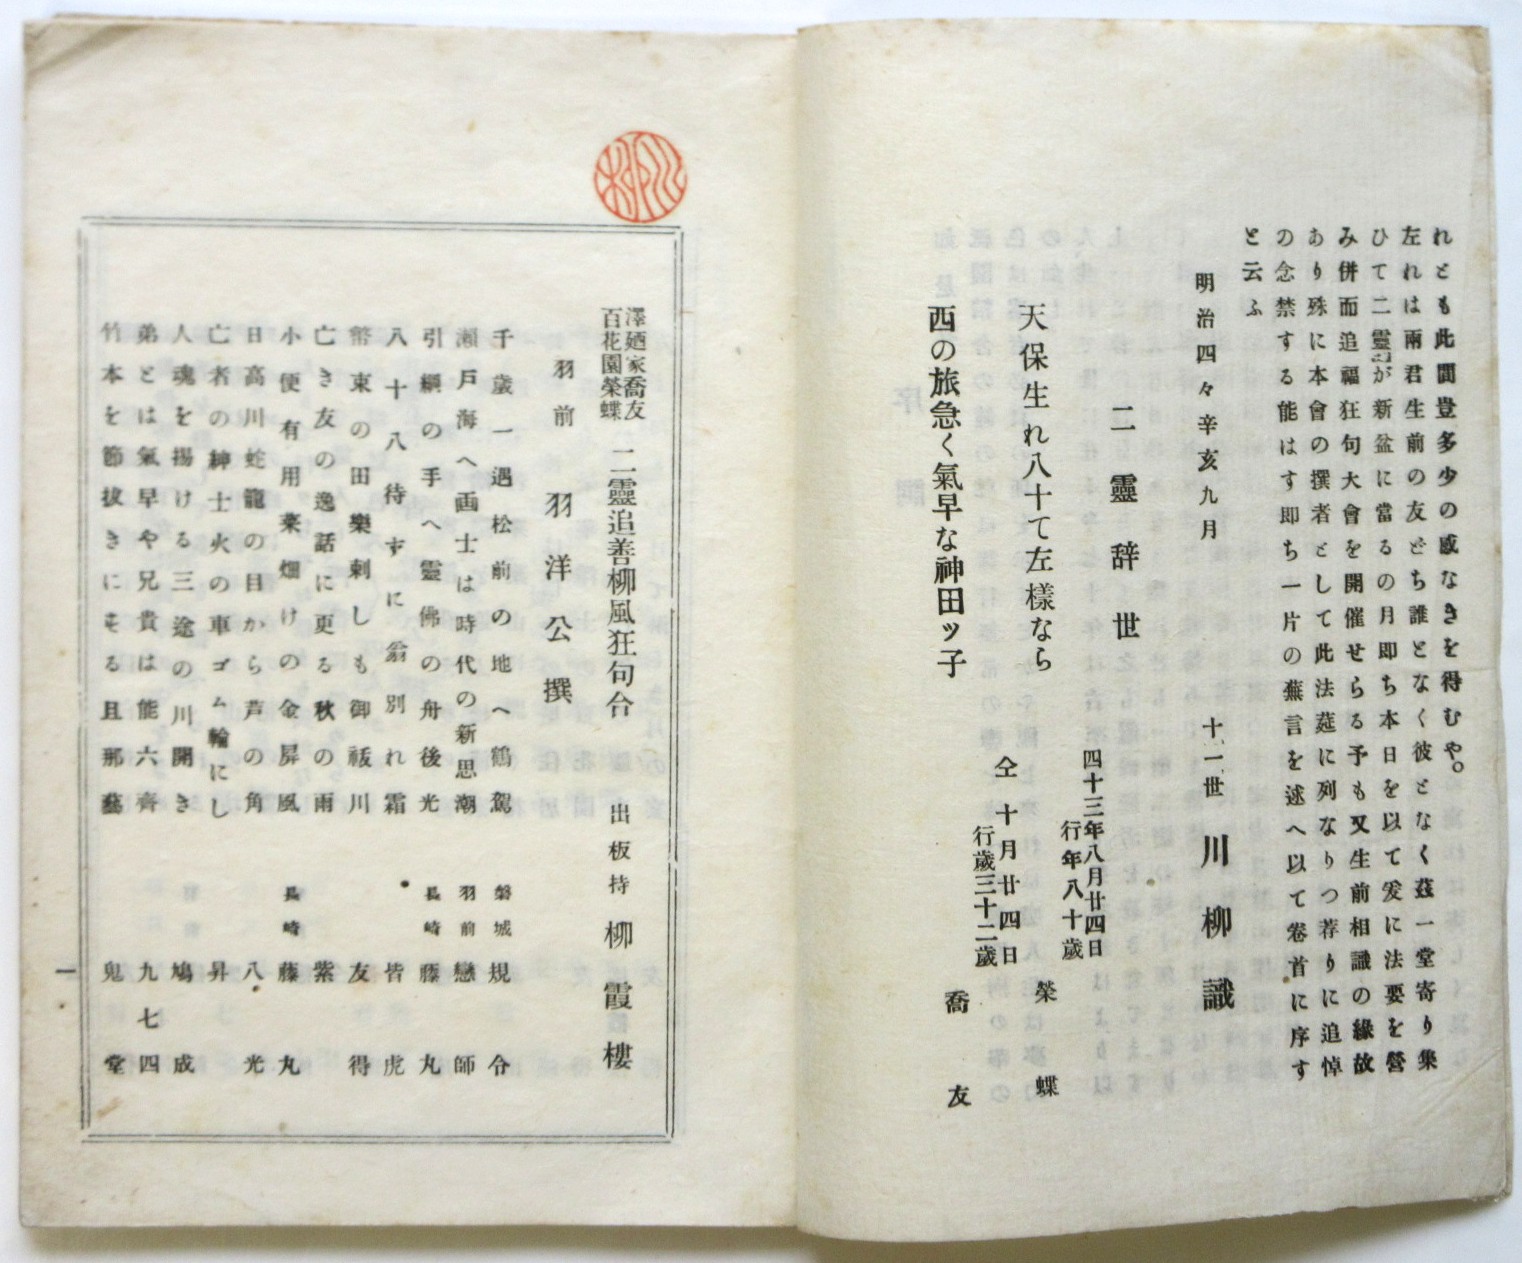 れとも此間豈多少の感なきを得むや。
左れは兩君生前の友どち誰となく彼となく茲一堂寄り集
ひて二靈が新盆に當るの月即ち本日を以て爰に法要を營
み併而追福狂句大會を開催せらる予も又生前相識の緣故
あり殊に本會の撰者として此法莚に列なりつ荐りに追悼
の念禁する能はす即ち一片の蕪言を述へ以て卷首に序す
と云ふ
明治四々辛亥九月
十一世 川柳 識
二靈辞世
四十三年八月廿四日
行年八十歲
天保生れ八十て左樣なら 榮蝶
仝 十月廿四日
行歲三十二歲
西の旅急く氣早な神田ッ子 喬友
澤廼家喬友
百花園榮蝶
二靈追善柳風狂句合 出板持 柳霞樓
羽前 羽洋公撰
千歲一遇松前の地へ鶴駕 磐城 規令
瀬戸海へ画士は時代の新思潮 羽前 戀師
引綱の手へ靈佛の舟後光 長崎 藤丸
八十八待すに翁別れ霜 皆虎
幣束の田樂刺しも御祓川 友得
亡き友の逸話に更る秋の雨 紫
小便有用菜畑けの金屏風 長崎 藤丸
日高川蛇籠の目から芦の角 八光
亡者の紳士火の車ゴム輪にし 昇
人魂を揚ける三途の川開き 鳩成
弟とは氣早や兄貴は能六齊 九七四
竹本を節拔きにする且那藝 鬼堂
一